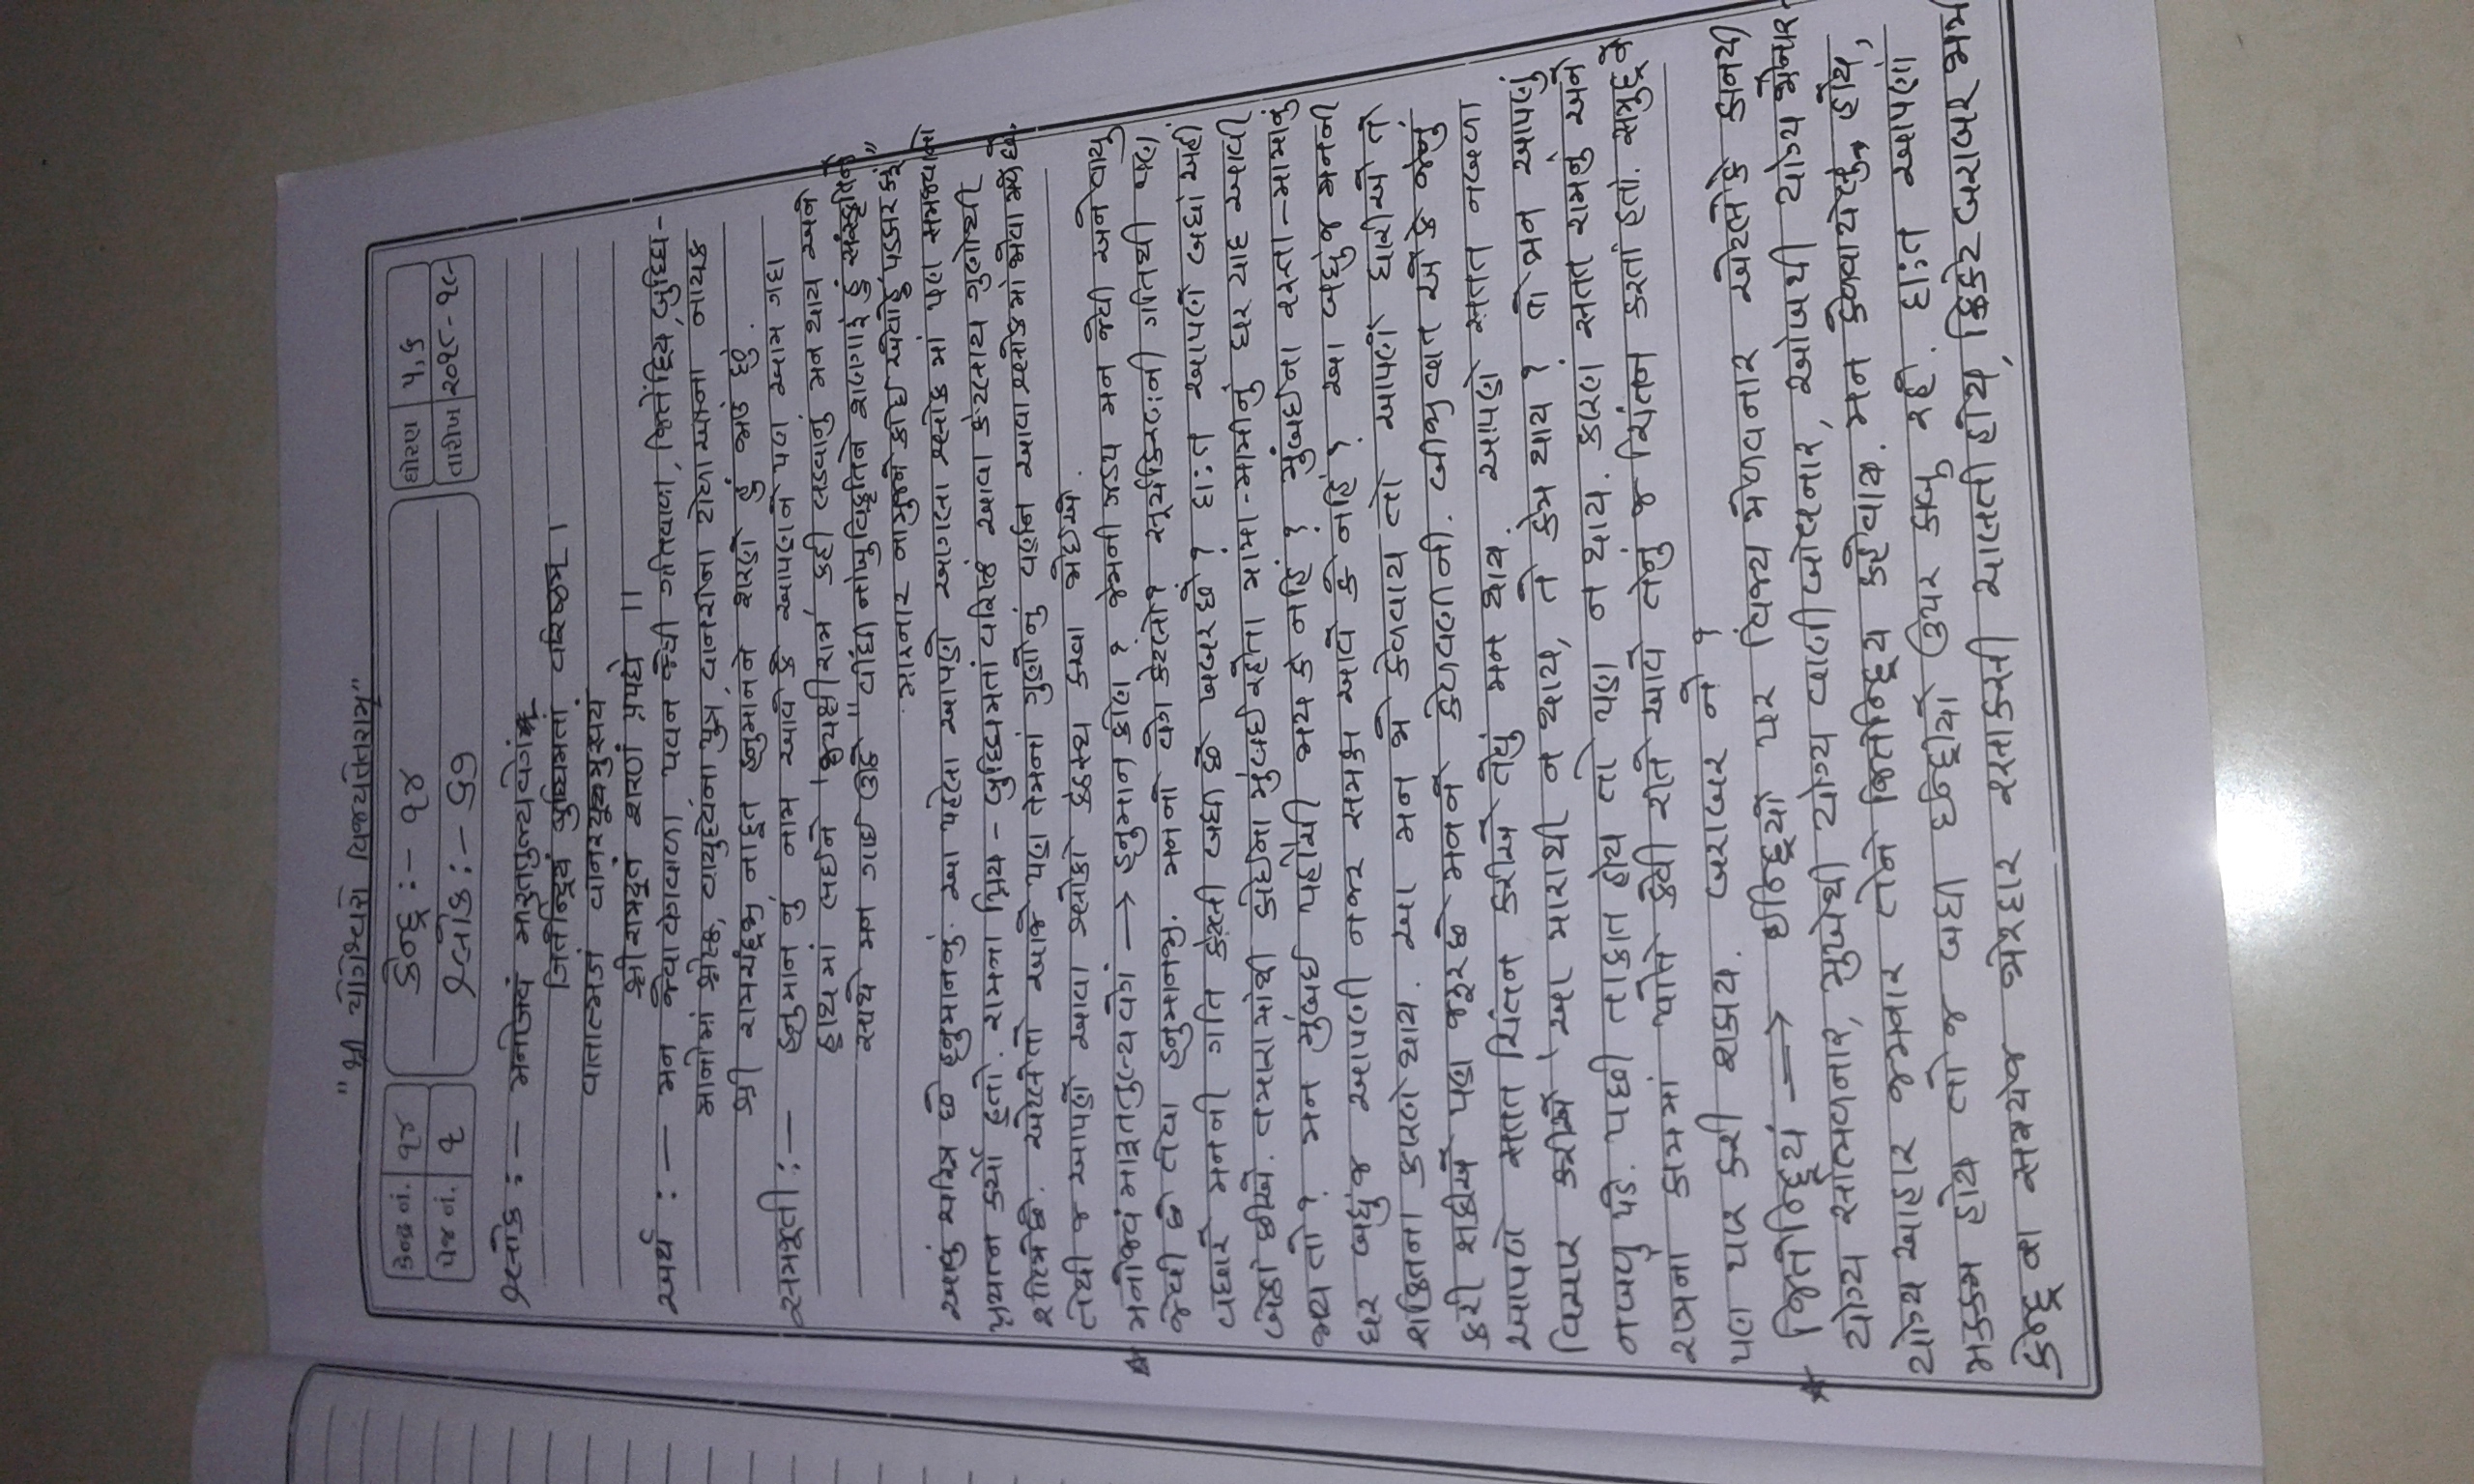 "શ્રી યોગેશ્વરો વિજયતેતરામ્"
કેન્દ્ર નં. ૧૪
પેજ નં. ૧
કેન્દ્ર :- ૧૪
શ્લોક :- ૬૭
ધોરણ ૫,૬
તારીખ ૨૦૧૮-૧૯
શ્લોક :- મનોજવં મારુતતુલ્યવેગં
જિતેન્દ્રિયં બુધ્ધિમતાં વરિષ્ઠમ્ ।
વાતાત્મજં વાનરયૂથમુખ્યં
શ્રીરામદૂતં શરણં પ્રપદ્યે ।।
અર્થ :- મન જેવા વેગવાળા, પવન જેવી ગતિવાળા, જિતેંદ્રિય, બુધ્ધિ-
માનોમાં શ્રેષ્ઠ, વાયુદેવના પુત્ર, વાનરોના ટોળા નાયક
શ્રી રામચંદ્રજી નાદૂત હનુમાનને શરણે હું જાઉં છું.
સમજૂતી :- હનુમાન નું નામ આવે કે આપણને પણ આમ ગદા
હાથ માં લઈને 'જયશ્રીરામ' કહી લડવાનું મન થાય અને
સાથે મન ગાઈ ઊઠે "વીંધી નાંખુ વિકૃતિને શણગારું હું સંસ્કૃતિને
મારનાર ના મુજને કોઈ એવો હું પડકાર કરું"
આવું ચરિત્ર છે હનુમાનનું. આ પહેલા આપણે આગલા શ્લોક માં પણ સમજવાનો
પ્રયત્ન કર્યો હતો. રામના પ્રિય - બુધ્ધિમતાં વરિષ્ઠં આવા કેટલાય ગુણોથી
એટલે તો આજે પણ તેમનાં ગુણોનું વર્ણન આવા શ્લોક માં જોવા મળે છે.
તેથી જ આપણે આવા શ્લોકો કંઠસ્થ કરવા જોઈએ.
* મનોજવં મારૂતતુલ્ય વેગં → હનુમાન કોણ ? જેમની ઝડપ મન જેવી અને વાયુ
જેવી છે તેવા હનુમાનજી. મનનો વેગ કેટલો? સૂર્યકિરણની ગતિથી પણ
વધારે મનની ગતિ કેટલી બધી છે ખબર છે ? દા:ત આપણે બધાં અહીં
બેઠાં છીએ. તમારામાંથી કોઈના મુંબઈ રહેતા મામા-મામીનું ઘર યાદ આવી
જાય તો ? મન મુંબઈ પહોંચી જાય કે નહિં ? મુંબઈના રસ્તા-મામાનું
ઘર બધું જ આપણી નજર સમક્ષ આવે કે નહિં ? આ બધું જ મનની
શક્તિના કારણે થાય. આ મન જો કેળવાય તો આપણે ધારીએ તે
કરી શકીએ પણ જરૂર છે મનને કેળવણીની. બીજી વાત એ કે જેનું
આપણે સતત ચિંતન કરીએ તેવું મન થાય. આપણે સતત નબળા
વિચાર કરીએ 'આ મારાથી ન થાય, તે કેમ થાય ? તો મન આપણું
નબળુ પડે. પછી તાકાત હોય તો પણ ન થાય. કારણ સતત રામનું અને
રામના કામમાં પોતે કેવી રીતે આવે તેનું જ ચિંતન કરતાં હતાં. સમુદ્ર ને
પણ પાર કરી શકાય. બરાબર ને ?
* જિતેન્દ્રિયં → ઈન્દ્રિયો પર વિજય મેળવનાર એટલે કે કાનથી
યોગ્ય સાંભળનાર, મુખેથી યોગ્ય વાણી બોલનાર, આંખથી યોગ્ય જોનાર,
યોગ્ય આહાર જમનાર તેને જિતેન્દ્રિય કહેવાય. મન કેળવાયેલું હોય,
મક્કમ હોય તો જ બધી ઈન્દ્રીયો ઉપર કાબુ રહે. દા:ત આપણાં
કેન્દ્ર ના સમયેજ જોરદાર ચાલતી હોય, ક્રિકેટ બરાબર